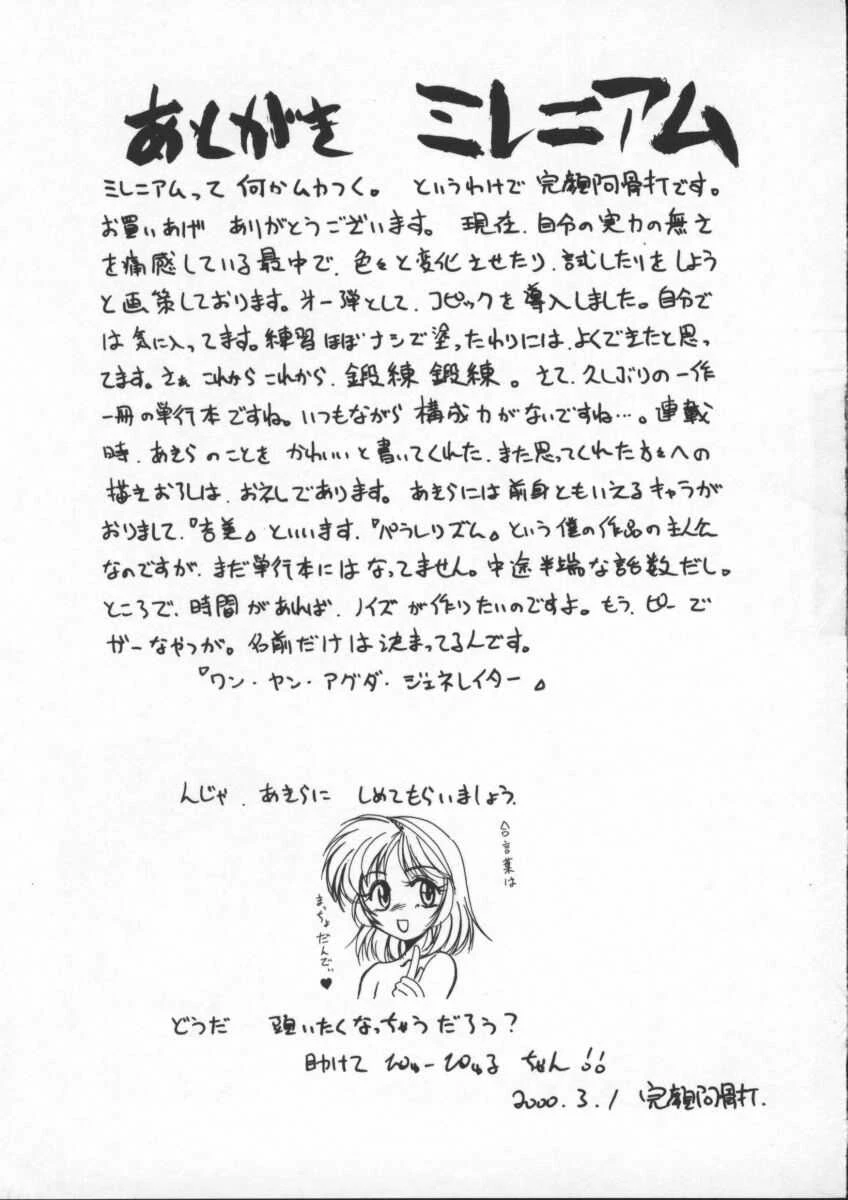 あとがき ミレニアム
ミレニアムって 何かムカつく。 というわけで 完顔阿骨打です。
お買いあげ ありがとうございます。 現在、自分の実力の無さ
を痛感している最中で、色々と変化させたり、試したりをしよう
と画策しております。才一弾として、コピックを導入しました。自分で
は気に入ってます。練習ほぼナシで塗ったわりには、よくできたと思っ
てます。さぁ これから これから、鍛練 鍛練。さて、久しぶりの一作
一冊の単行本ですね。いつもながら 構成力がないですね…。連載
時、あきらのことを かわいいと書いてくれた、また思ってくれた方々への
描きおろしは、おえしであります。あきらには前身ともいえるキャラが
おりまして、『吉美』といいます、『パラレリズム』という僕の作品の主人公
なのですが、まだ単行本にはなってません。中途半端な話数だし。
ところで、時間があれば、ノイズが作りたいのですよ。もう、ピーで
ガーなやつが。名前だけは決まってるんです。
『ワン・ヤン・アグダ・ジェネレイター』
んじゃ、あきらに しめてもらいましょう、
合言葉は
まっちょだんでぃ♥
どうだ 頭いたくなっちゃうだろう?
助けて ちゃん!!
2000.3.1 完顔阿骨打.